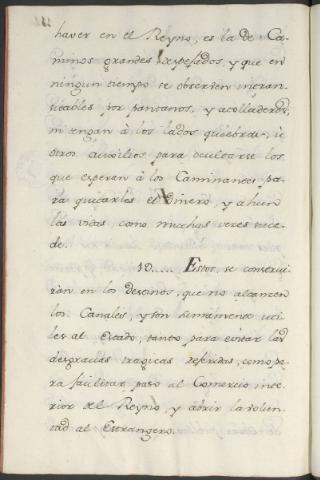 haver en el Reyno, es la de Ca-
minos grandes despejados, y que en
ningun tiempo se observen intran-
sitables por pantanos, y acolladeros,
ni tengan à los lados quiebras, ù
otros auxilios para ocultarse los
que esperan à los Caminantes pa-
ra quitarles el Dinero, y ahun
las vidas como muchas veces suce-
de.
10..... Estos, se construi-
ràn en los destinos, que no alcancen
los Canales, y son sumamente uti-
les al Estado, tanto para evitar las
desgracias tragicas referidas, como pa-
ra facilitar paso al Comercio inte-
rior del Reyno, y abrir la volun-
tad al Estrangero.